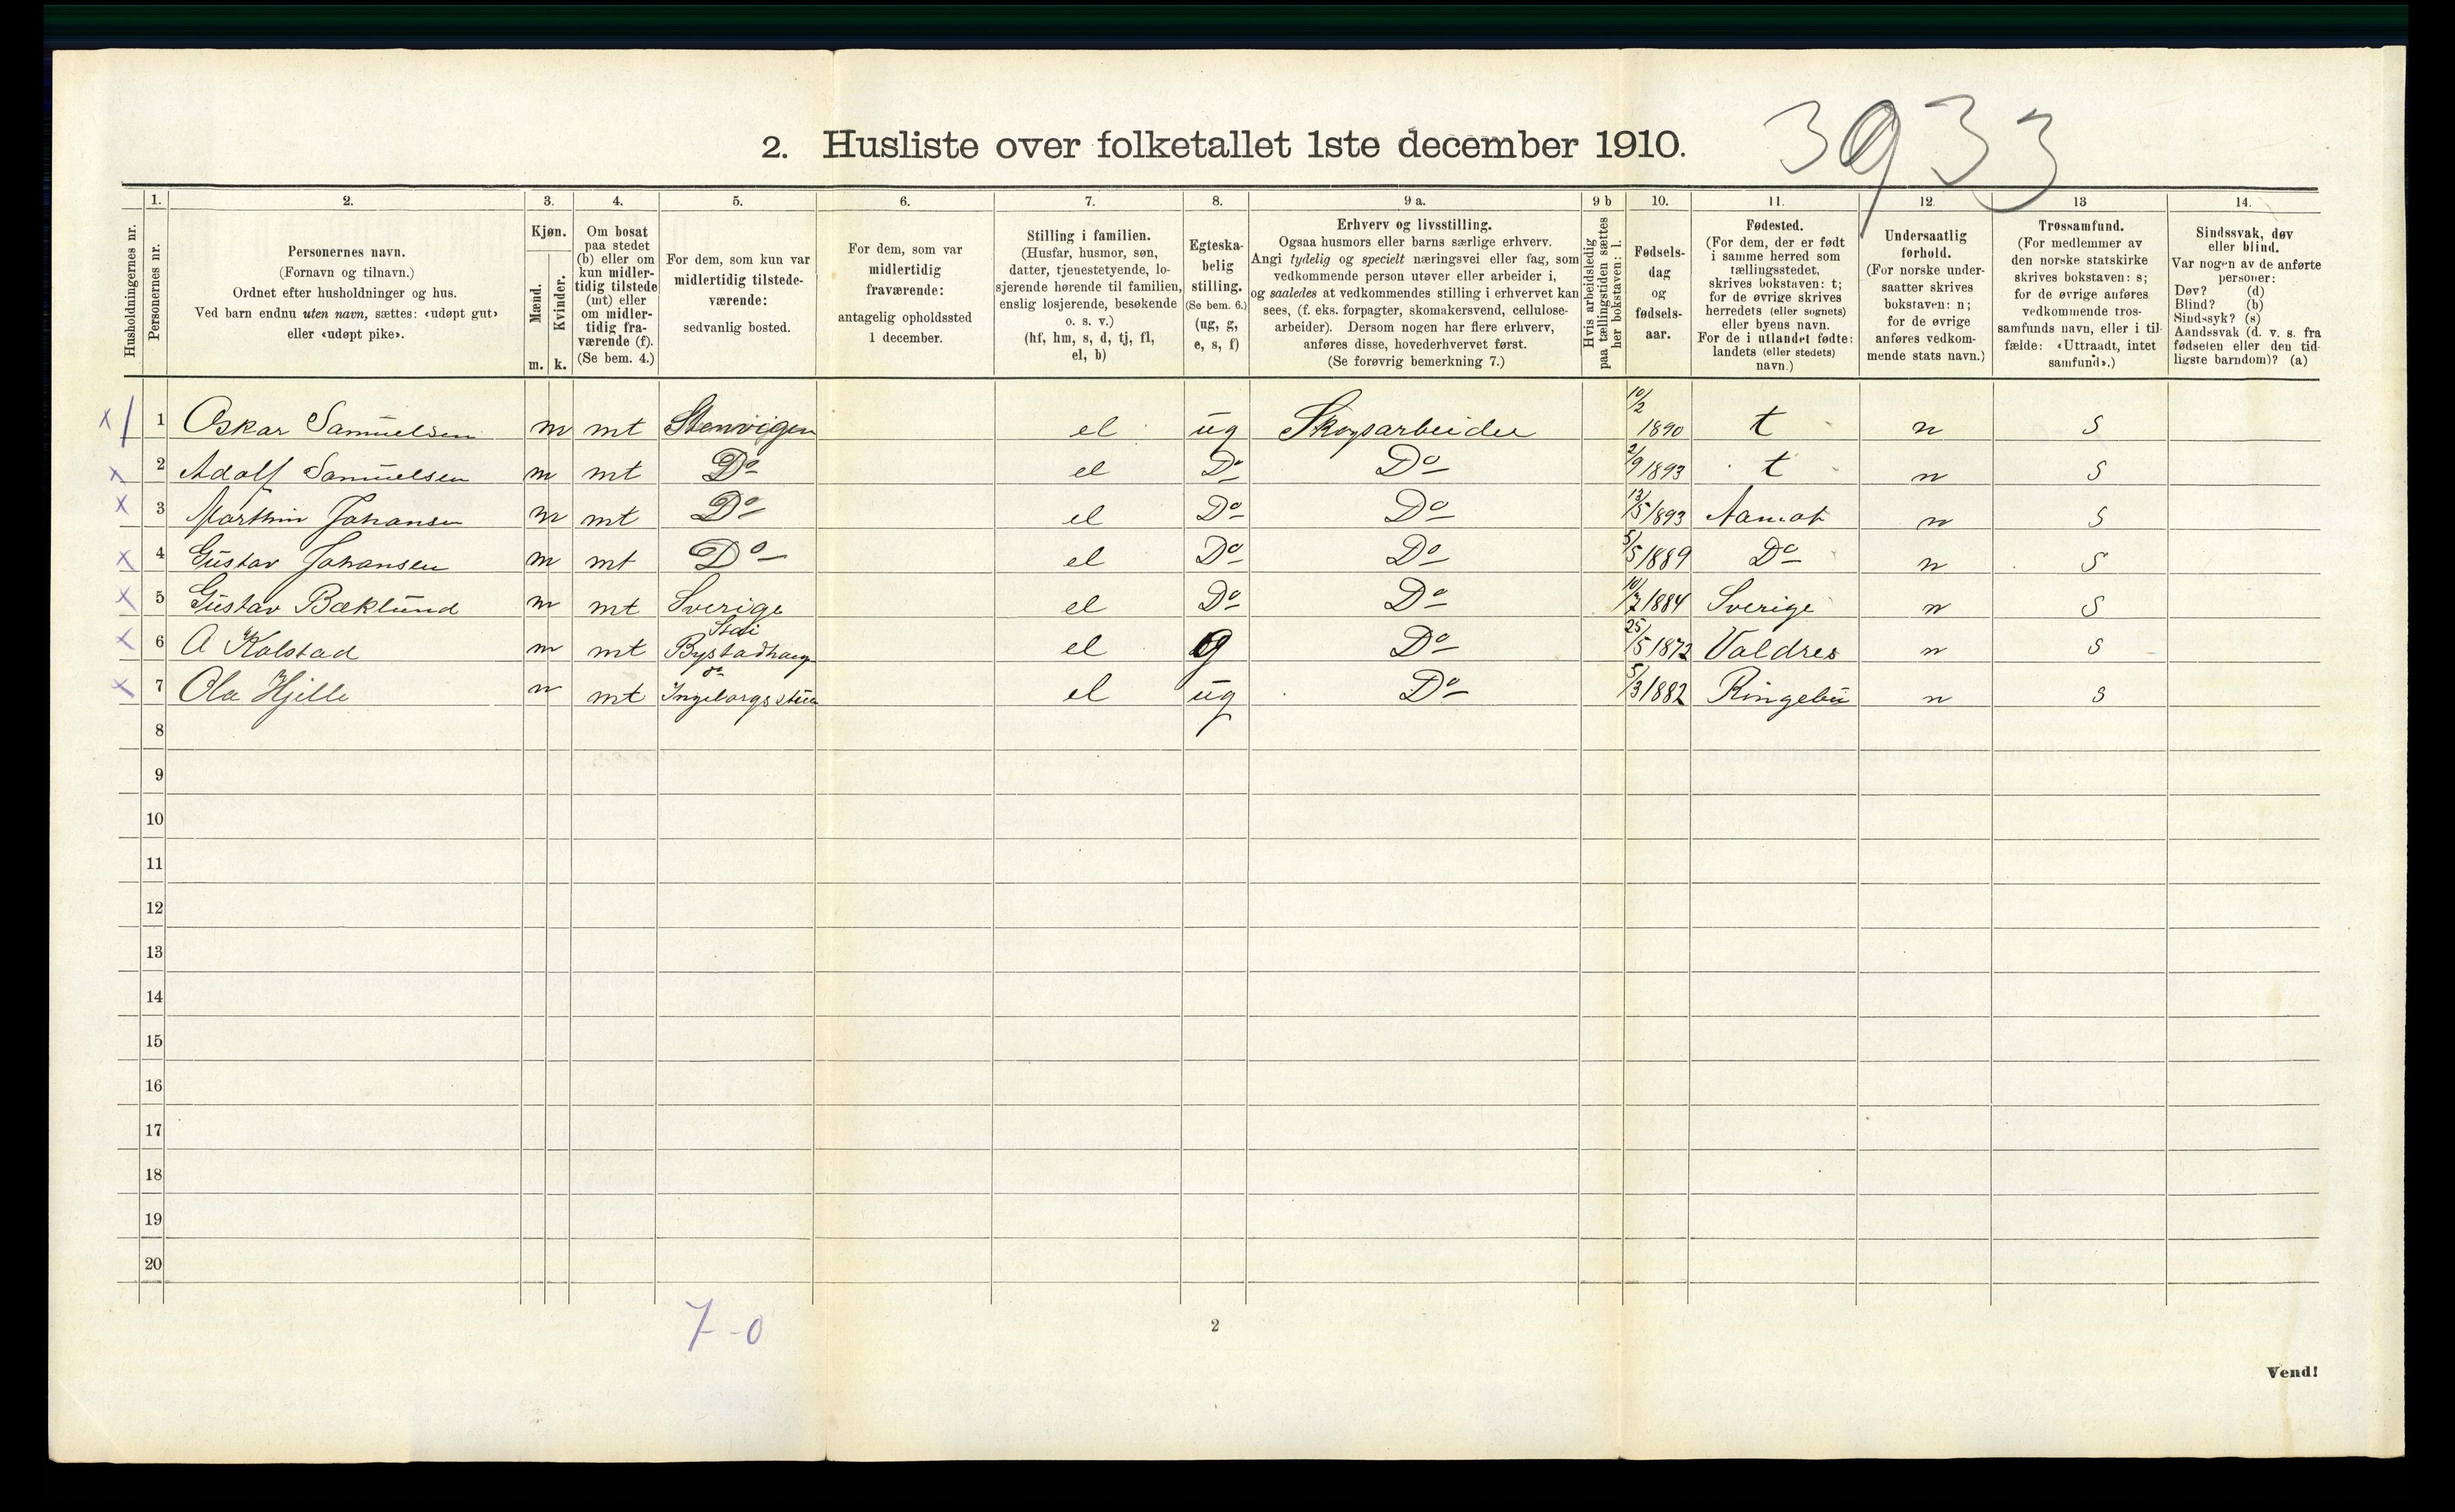 3933
2. Husliste over folketallet 1ste december 1910.
Husholdningernes nr.
1. Personernes nr.
2. Personernes navn. (Fornavn og tilnavn.) Ordnet efter husholdninger og hus. Ved barn endnu uten navn, sættes: «udøpt gut» eller «udøpt pike».
3. Kjøn. Mænd. m. Kvinder. k.
4. Om bosat paa stedet (b) eller om kun midler-tidig tilstede (mt) eller om midler-tidig fra-værende (f). (Se bem. 4.)
5. For dem, som kun var midlertidig tilstede-værende: sedvanlig bosted.
6. For dem, som var midlertidig fraværende: antagelig opholdssted 1 december.
7. Stilling i familien. (Husfar, husmor, søn, datter, tjenestetyende, lo-sjerende hørende til familien, enslig losjerende, besøkende o. s. v.) (hf, hm, s, d, tj, fl, el, b)
8. Egteska-belig stilling. (Se bem. 6.) (ug, g, e, s, f)
9 a. Erhverv og livsstilling. Ogsaa husmors eller barns særlige erhverv. Angi tydelig og specielt næringsvei eller fag, som vedkommende person utøver eller arbeider i, og saaledes at vedkommendes stilling i erhvervet kan sees, (f. eks. forpagter, skomakersvend, cellulose-arbeider). Dersom nogen har flere erhverv, anføres disse, hovederhvervet først. (Se forøvrig bemerkning 7.)
9 b Hvis arbeidsledig paa tællingstiden sættes her bokstaven: l.
10. Fødsels-dag og fødsels-aar.
11. Fødested. (For dem, der er født i samme herred som tællingsstedet, skrives bokstaven: t; for de øvrige skrives herredets (eller sognets) eller byens navn. For de i utlandet fødte: landets (eller stedets) navn.)
12. Undersaatlig forhold. (For norske under-saatter skrives bokstaven: n; for de øvrige anføres vedkom-mende stats navn.)
13 Trossamfund. (For medlemmer av den norske statskirke skrives bokstaven: s; for de øvrige anføres vedkommende tros-samfunds navn, eller i til-fælde: «Uttraadt, intet samfund».)
14. Sindssvak, døv eller blind. Var nogen av de anførte personer: Døv? (d) Blind? (b) Sindssyk? (s) Aandssvak (d. v. s. fra fødselen eller den tid-ligste barndom)? (a)
x 1 Oskar Samuelsen m mt Stenvigen el ug Skogsarbeider 10/2 1890 t n s
x 2 Adolf Samuelsen m mt Do el Do Do 2/9 1893 t n s
x 3 Marthin Johansen m mt Do el Do Do 13/5 1893 Aamot n s
x 4 Gustav Johansen m mt Do el Do Do 5/5 1889 Do n s
x 5 Gustav Bæklund m mt Sverige el Do Do 10/7 1884 Sverige n s
x 6 A Kolstad m mt Stai Bystadhaug el g Do 25/5 1872 Valdres n s
x 7 Ola Hjelle m mt Do Ingeborgsstuen el ug Do 5/3 1882 Ringebu n s
8
9
10
11
12
13
14
15
16
17
18
19
20
7-0
2
Vend!